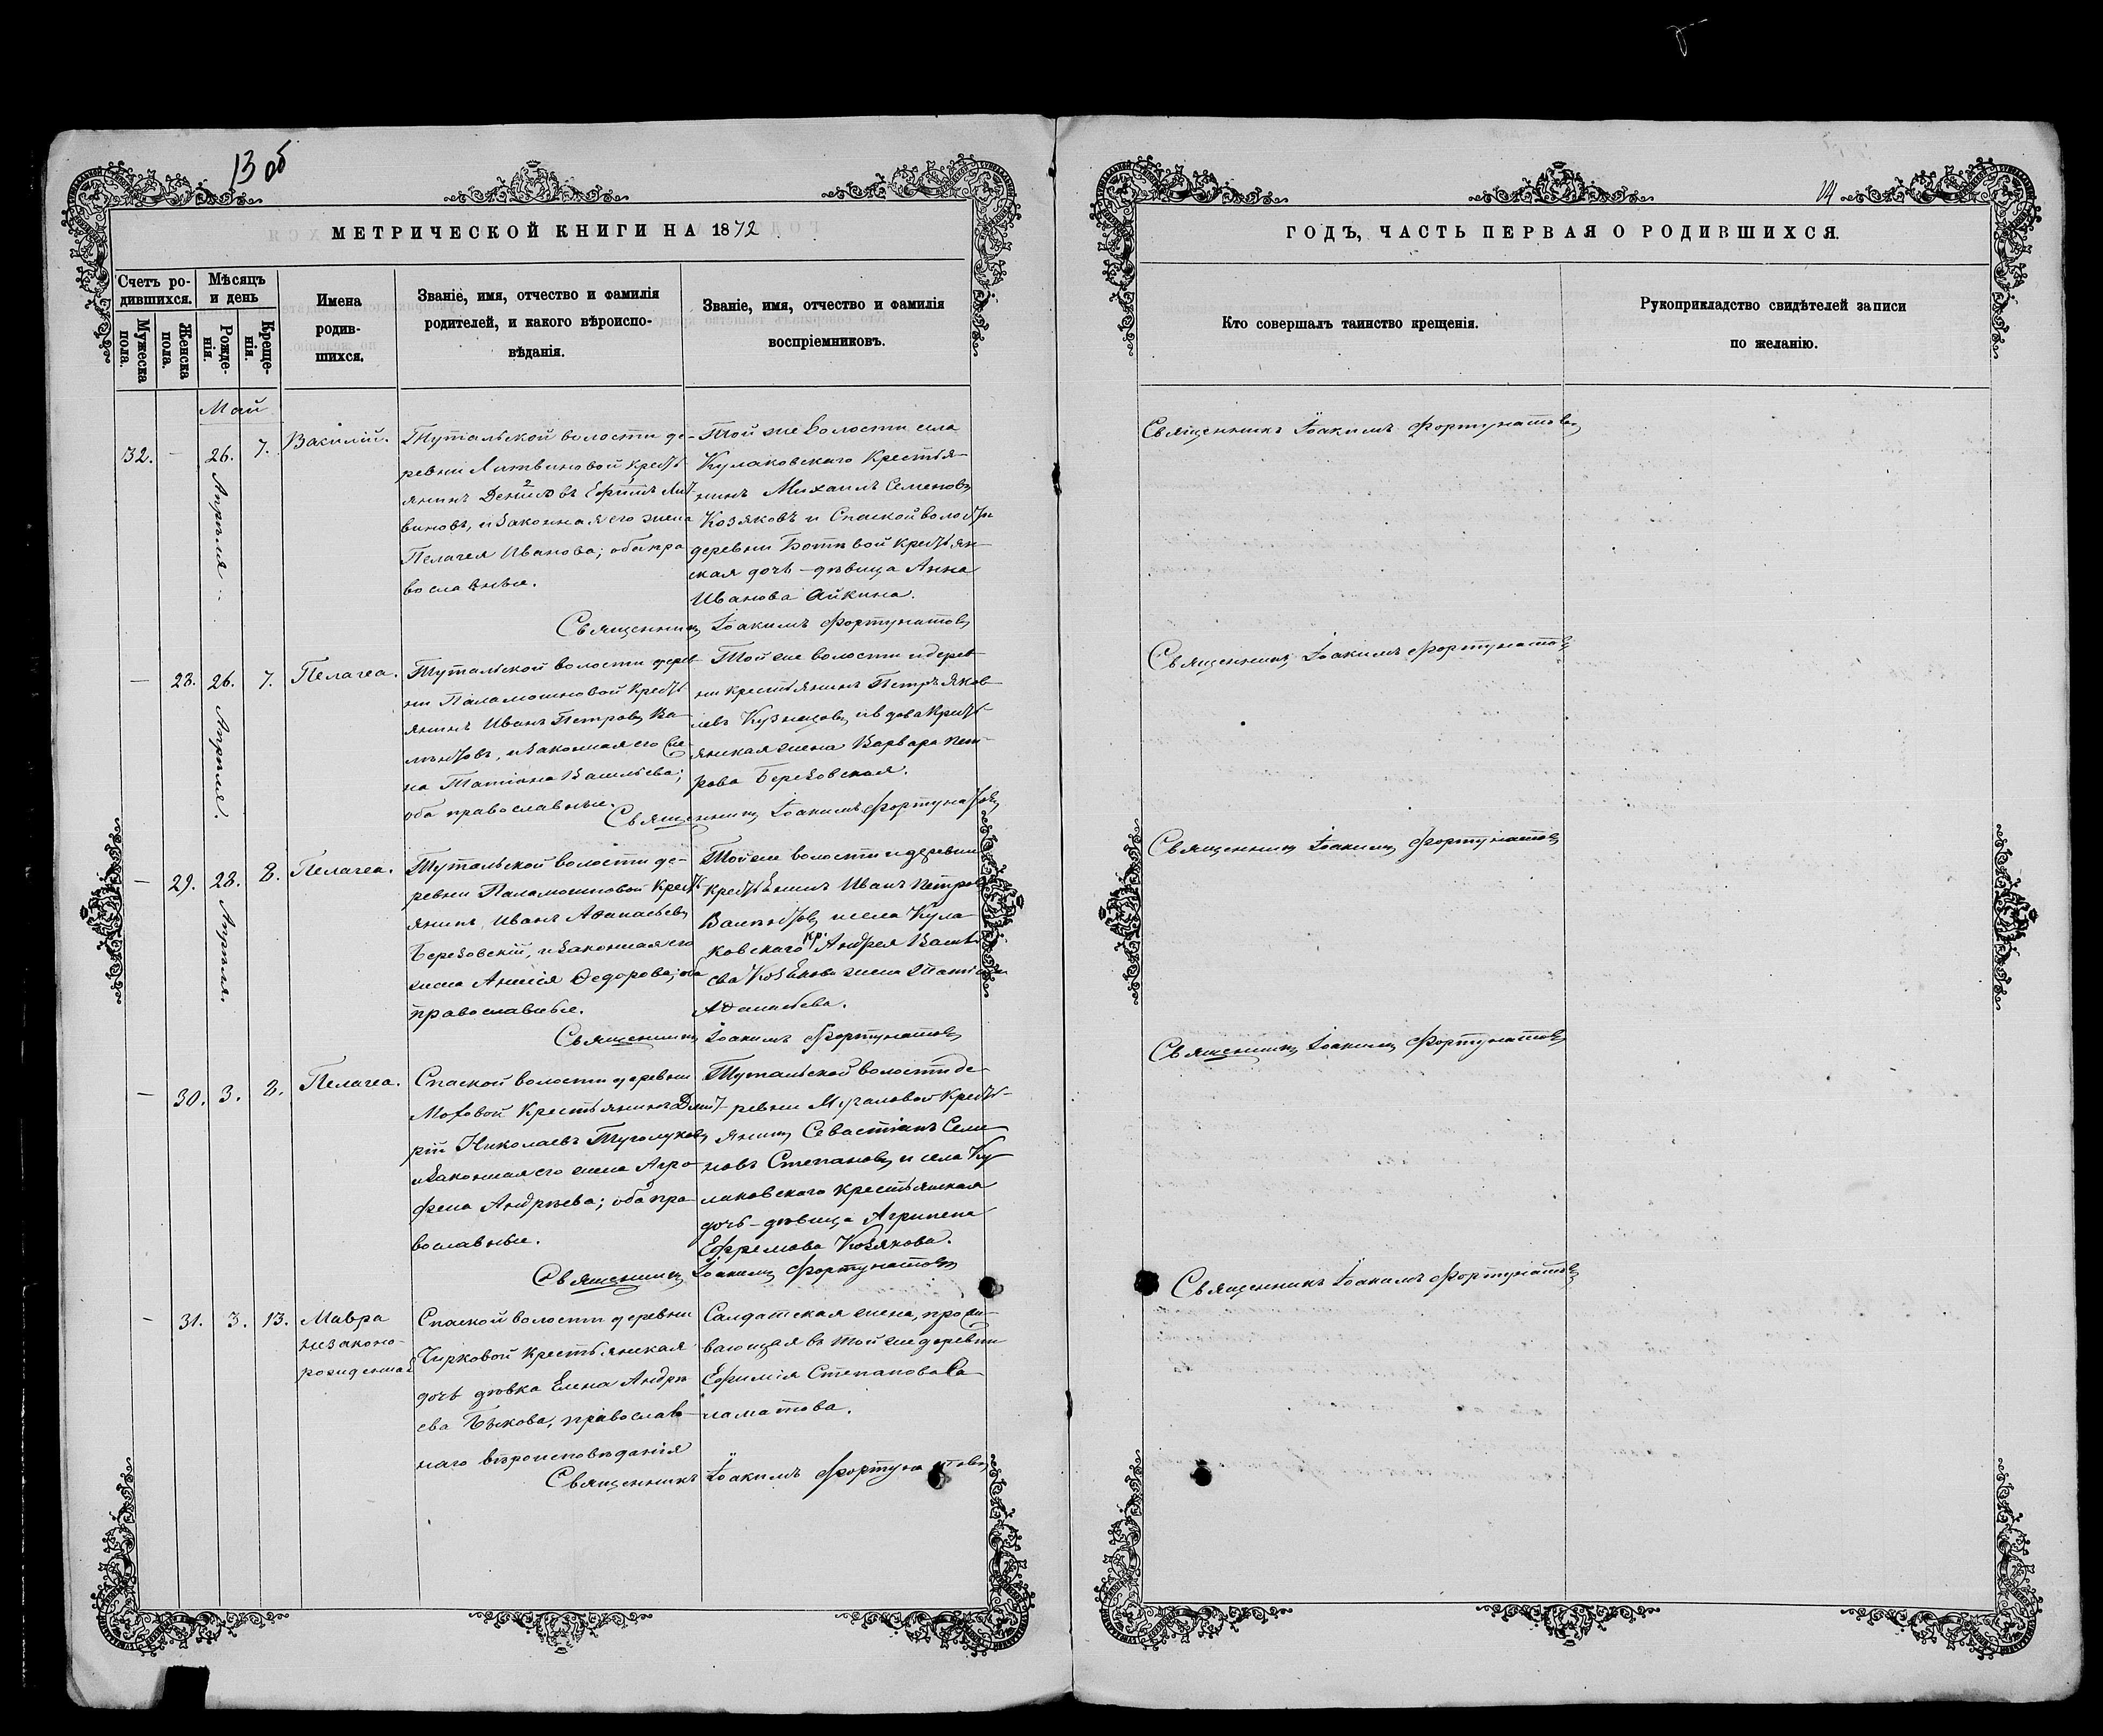 13 об
МЕТРИЧЕСКОЙ КНИГИ НА 1872
Счетъ ро-
дившихся.
Мѣсяцъ
и день
Мужеска
пола.
Женска
пола.
Рожде-
нія.
Креще-
нія.
Имена
родив-
шихся.
Званіе, имя, отчество и фамилія
родителей, и какого вѣроиспо-
вѣданія.
Званіе, имя, отчество и фамилія
воспріемниковъ.
Май
32. - 26. 7. Василій.
Апрѣля
Тутальской волости де-
ревни Литвиновой крест
янинъ Ефимъ Лит
виновъ, и законная его жена
Пелагея Иванова; оба пра
вославные.
Той же волости села
Кулаковскаго Крестья-
нинъ Михаилъ Семеновъ
Козяковъ и Спаской волости
деревни крестьян-
ская дочь - дѣвица Анна
Иванова Айкина.
Священникъ Іоакимъ Фортунатовъ
— 28. 26. 7. Пелагеа.
Апрѣля.
Тутальской волости дерев
ни Паламошновой крест
янинъ Иванъ Петровъ Ва-
лентовъ, и законная его же-
на Татіана Васильева;
оба православные.
Той же волости и дерев
ни крестьянинъ Петръ Яков
левъ Кузнецовъ, и вдова крест-
янская жена Варвара Пет-
рова Березовская.
Священникъ Іоакимъ Фортунатовъ
— 29. 28. 8. Пелагеа.
Апрѣля.
Тутальской волости де-
ревни Паламошновой крест
янинъ, Иванъ Аѳанасьевъ
Березовскій, и законная его
жена Анисія Ѳедорова; оба
православные.
Той же волости и деревни
крестьянинъ Иванъ Петровъ
Валентовъ и села Кула-
ковскаго кр. Андрея Василь
ева Козякова жена Татіана
Аѳанасьева.
Священникъ Іоакимъ Фортунатовъ
— 30. 3. 8. Пелагеа.
Спаской волости деревни
Моховой Крестьянинъ Дмит
рій Николаевъ Туголуковъ
и законная его жена Агро-
фена Андрѣева; оба пра-
вославные.
Тутальской волости де-
ревни Мугаловой крест-
янинъ Севастіанъ Семе
новъ Степановъ и села Ку
лаковскаго крестьянская
дочь - дѣвица Агрипена
Ефремова Козякова.
Священникъ Іоакимъ Фортунатовъ
- 31. 3. 13. Мавра
незаконо-
рожденная
Спаской волости деревни
Чирковой крестьянская
дочь дѣвка Елена Андрѣ
ева Быкова, православ-
наго вѣроисповѣданія
Салдатская жена, прожи-
вающая въ той же деревни
Ефимія Степанова Са-
ламатова.
Священникъ Іоакимъ Фортунатовъ
14
ГОДЪ, ЧАСТЬ ПЕРВАЯ О РОДИВШИХСЯ.
Кто совершалъ таинство крещенія.
Рукоприкладство свидѣтелей записи
по желанію.
Священникъ Іоакимъ Фортунатовъ
Священникъ Іоакимъ Фортунатовъ
Священникъ Іоакимъ Фортунатовъ
Священникъ Іоакимъ Фортунатовъ
Священникъ Іоакимъ Фортунатовъ